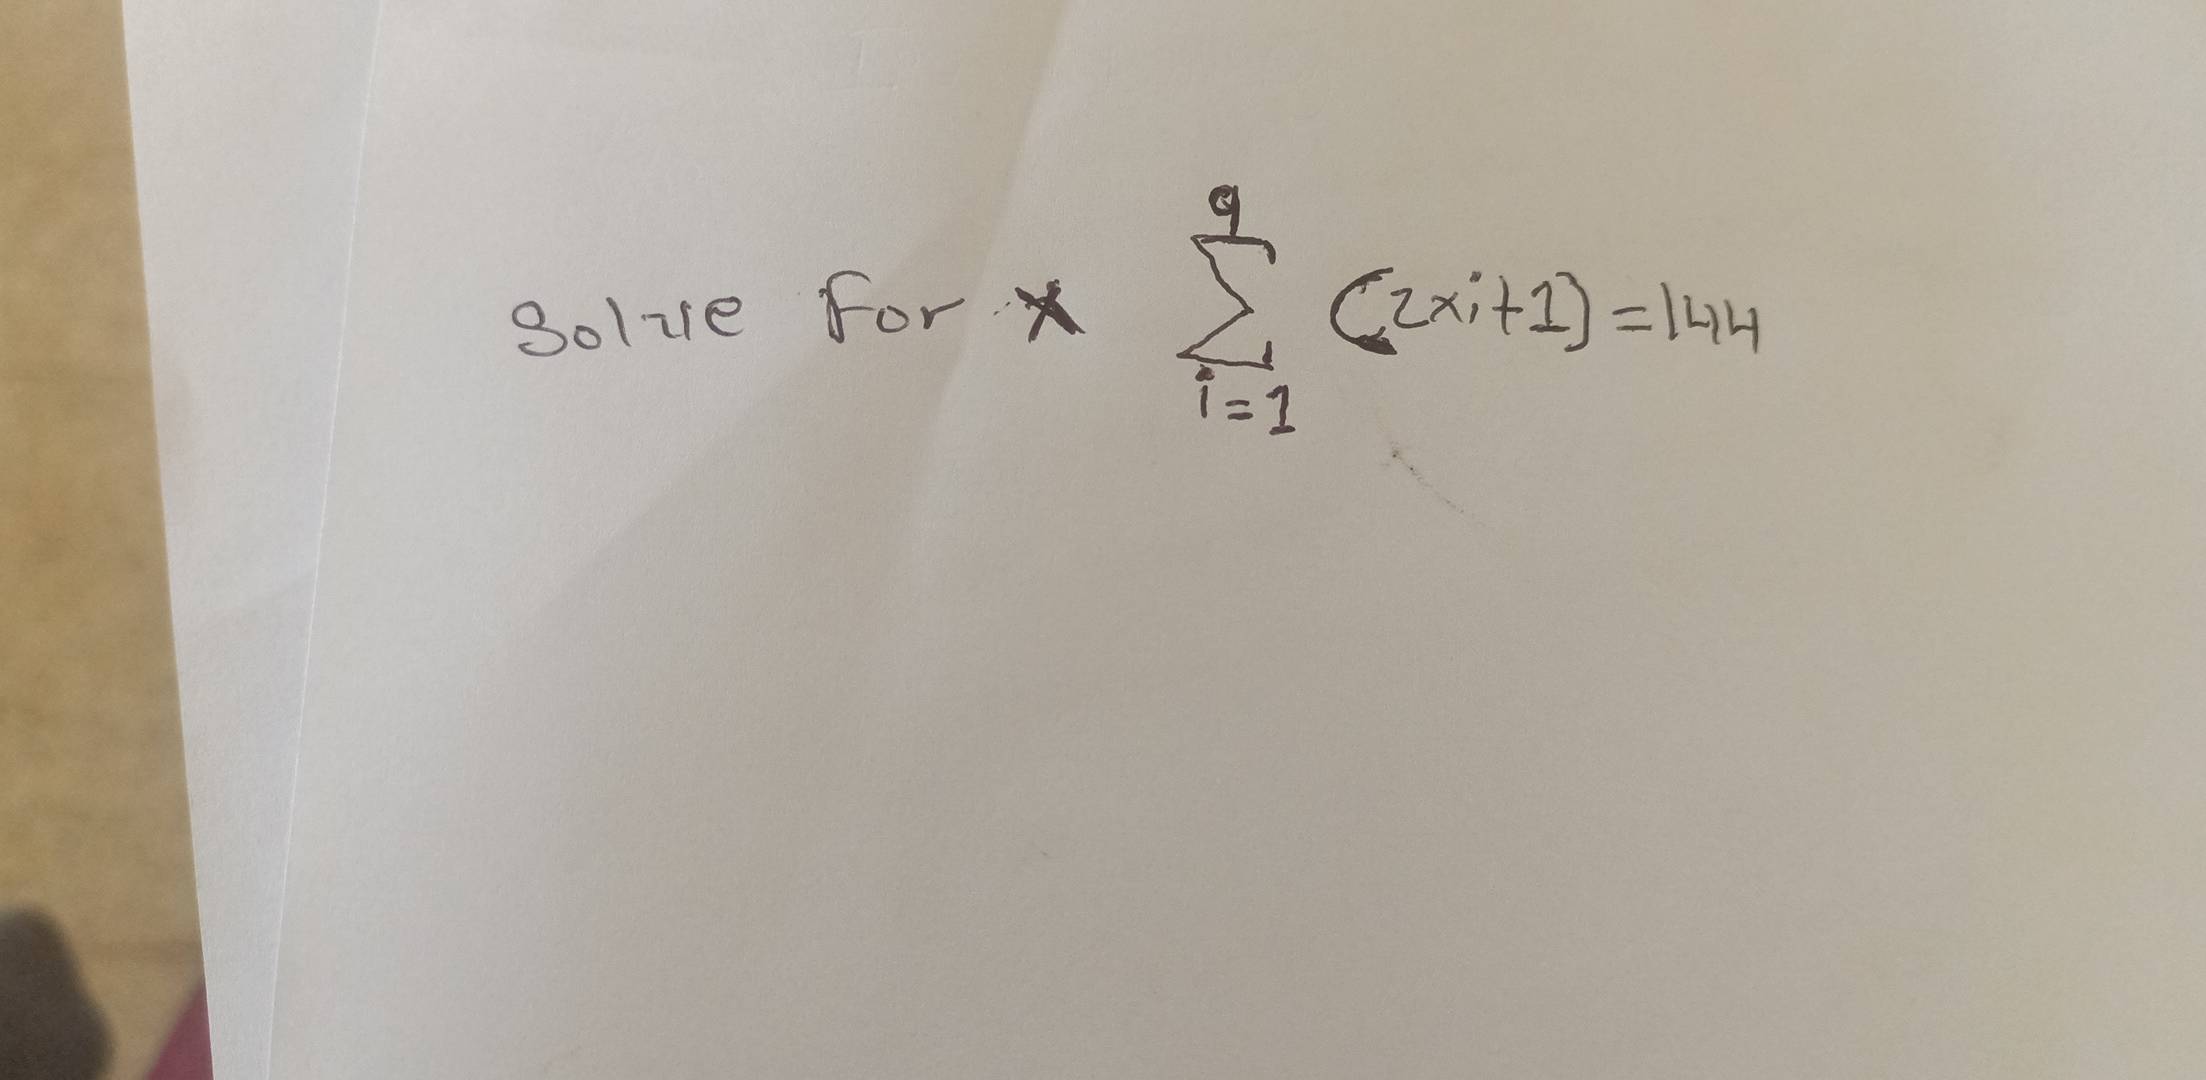 Solve for x \sum_{i=1}^{9} (2xi+1)=144